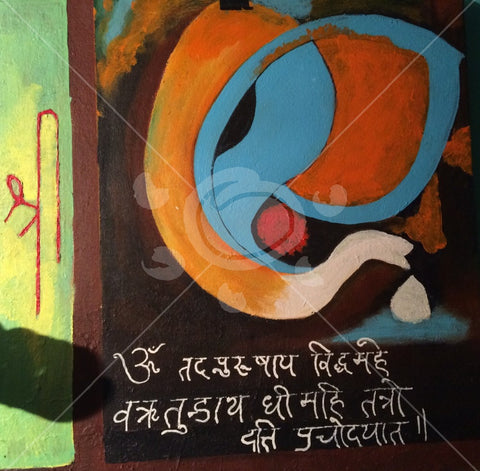 ॐ तदपुरूषाय विद्धमहे
वक्रतुन्डाय धीमहि तन्नो
दन्ति प्रचोदयात ॥